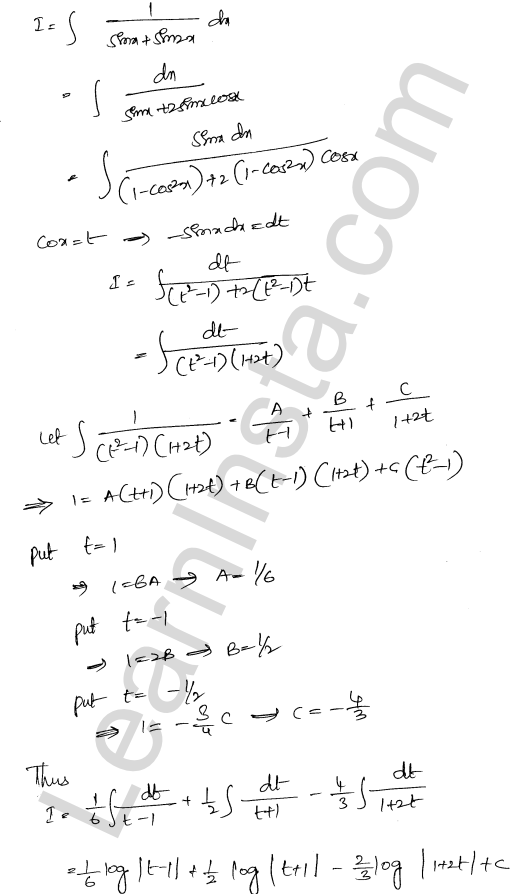 I = ∫ 1/(sinx + sin2x) dx
= ∫ dx/(sinx + 2sinxcosx)
= ∫ sinx dx/((1-cos²x) + 2(1-cos²x) cosx)
cosx = t → -sinxdx = dt
I = ∫ dt/((t²-1) + 2(t²-1)t)
= ∫ dt/((t²-1)(1+2t))
Let ∫ 1/((t²-1)(1+2t)) = A/(t-1) + B/(t+1) + C/(1+2t)
⇒ 1 = A(t+1)(1+2t) + B(t-1)(1+2t) + C(t²-1)
put t=1
⇒ 1=6A → A = 1/6
put t=-1
⇒ 1=2B → B=1/2
put t= -1/2
⇒ 1= -3/4 C → C = -4/3
Thus
I = 1/6 ∫ dt/(t-1) + 1/2 ∫ dt/(t+1) - 4/3 ∫ dt/(1+2t)
= 1/6 log |t-1| + 1/2 log |t+1| - 2/3 log |1+2t| + c
LearnInsta.com